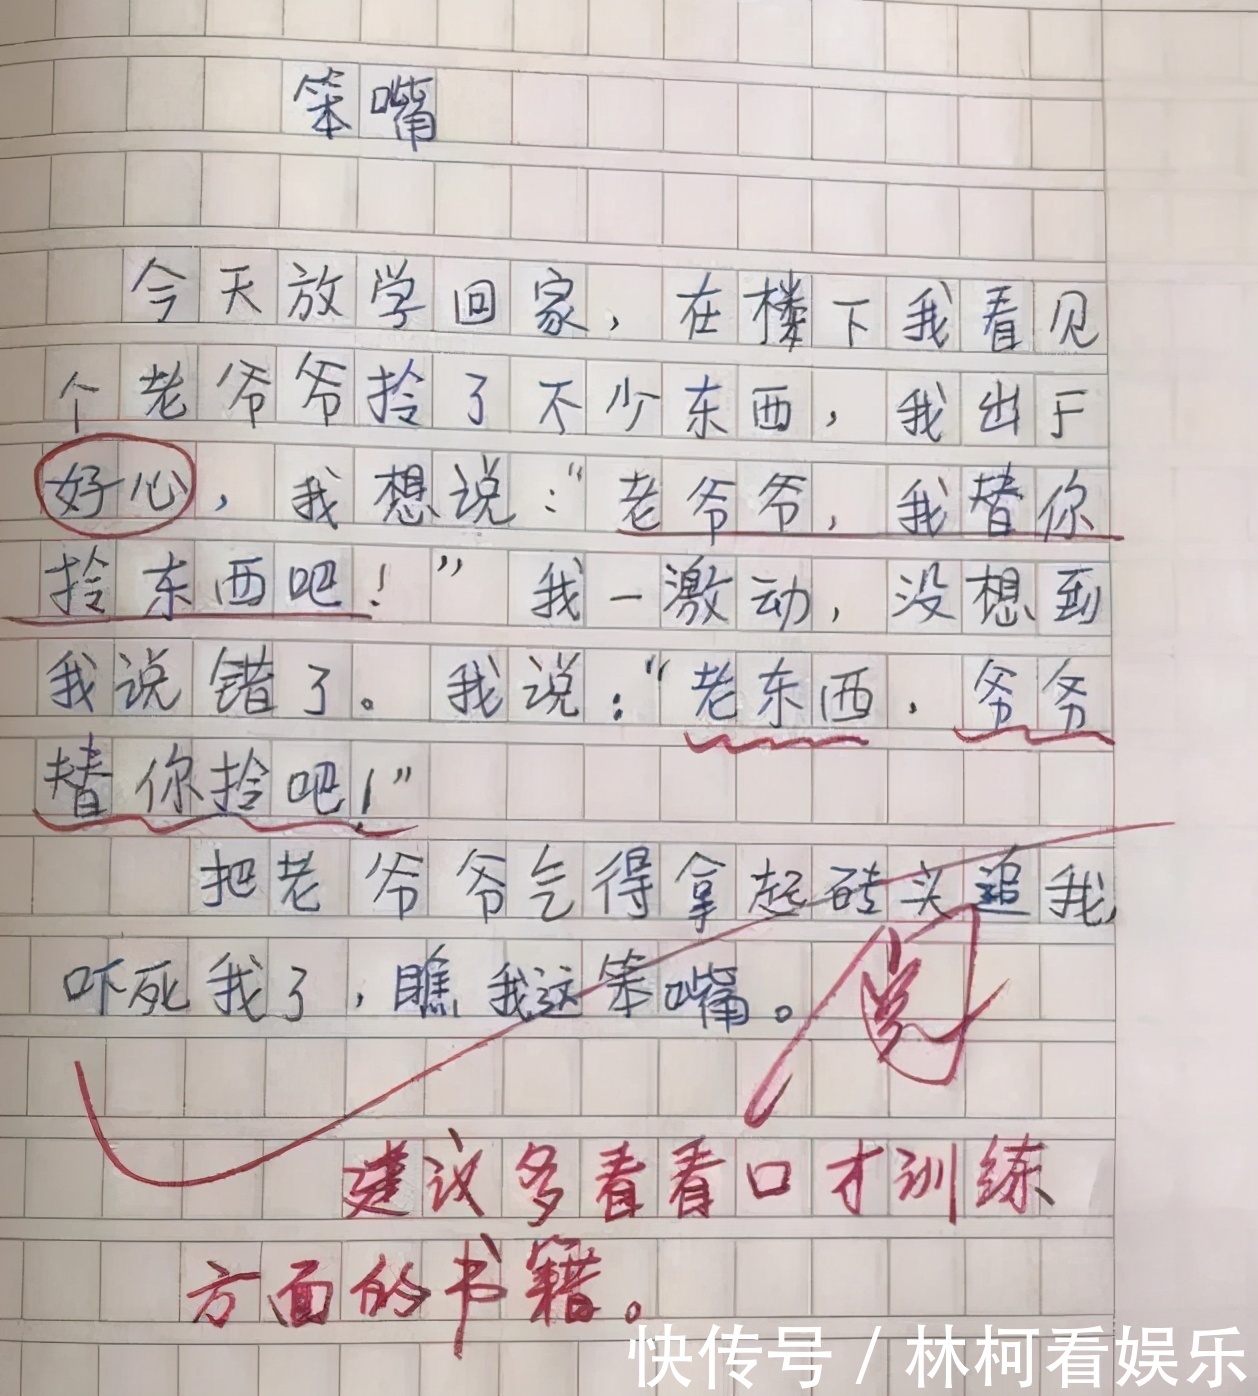 笨嘴
今天放学回家，在楼下我看见
个老爷爷拎了不少东西，我出于
好心，我想说：“老爷爷，我替你
拎东西吧！”我一激动，没想到
我说错了。我说：“老东西，爷爷
替你拎吧！”
把老爷爷气得拿起砖头追我，
吓死我了，瞧我这笨嘴。
阅
建议多看看口才训练
方面的书籍。
快传号／林柯看娱乐